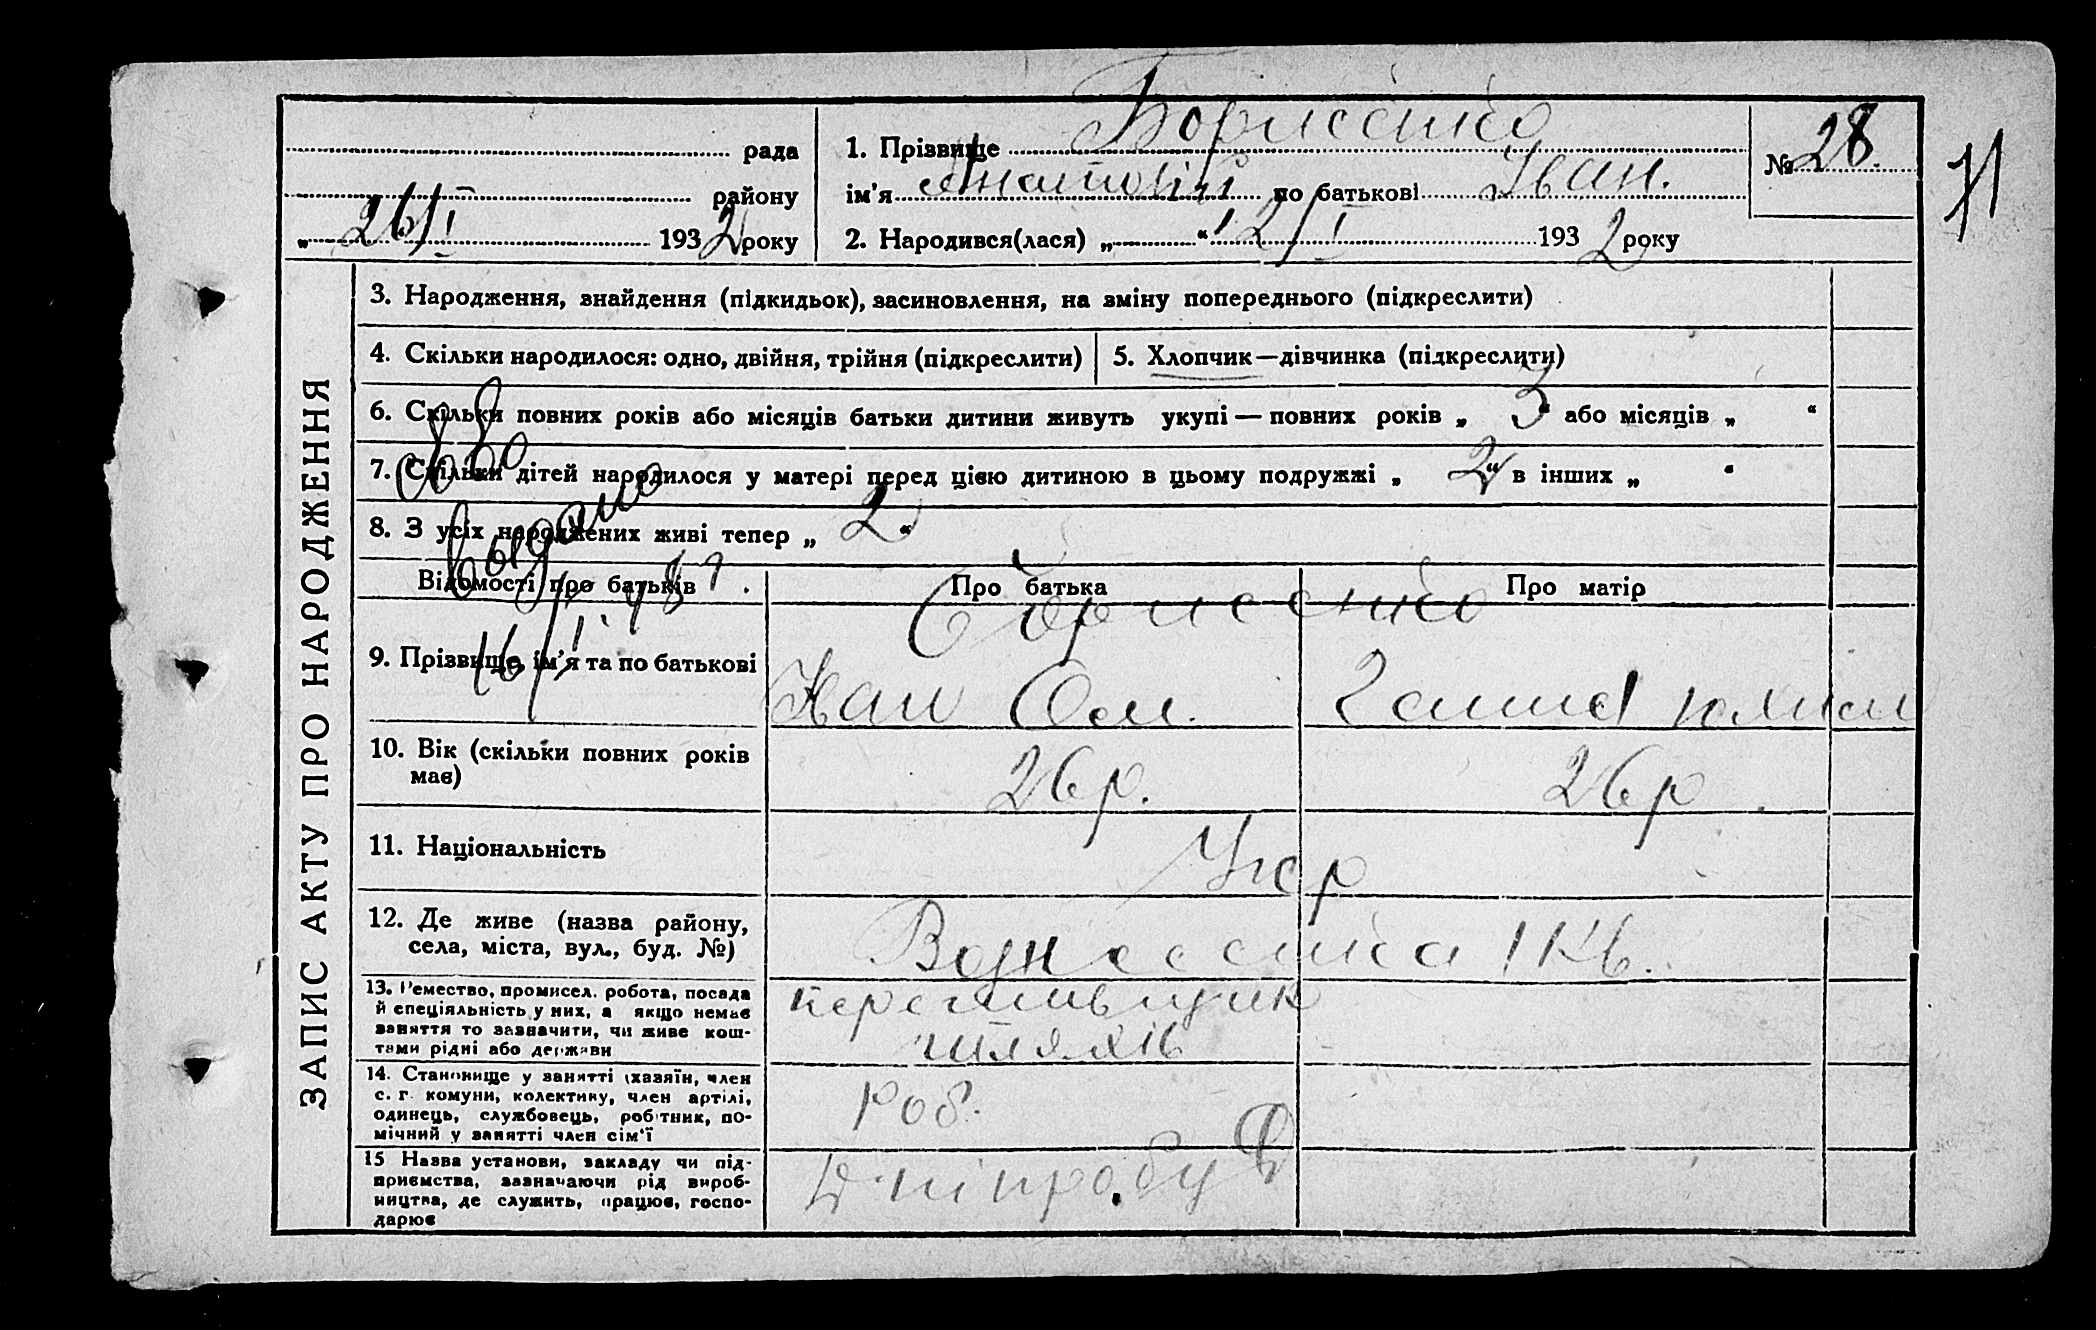 Борисенко
рада
1. Прізвище
№ 28.
71
району
ім'я Анатолій по батькові Іван.
„ 26/I 1932 року
2. Народився(лася) „ “ 12/I 1932 року
ЗАПИС АКТУ ПРО НАРОДЖЕННЯ
3. Народження, знайдення (підкидьок), засиновлення, на зміну попереднього (підкреслити)
4. Скільки народилося: одно, двійня, трійня (підкреслити)
5. Хлопчик—дівчинка (підкреслити)
6. Скільки повних років або місяців батьки дитини живуть укупі — повних років „ 3 “ або місяців „ “
7. Скільки дітей народилося у матері перед цією дитиною в цьому подружжі „ 2 “ в інших „ “
8. З усіх народжених живі тепер „ 2 “
выдано
Відомості про батьків
Про батька
Про матір
Борисенко
9. Прізвище, ім'я та по батькові
Іван Ом.
Галина Юхим
10. Вік (скільки повних років
має)
26 р.
26 р
11. Національність
Укр
12. Де живе (назва району,
села, міста, вул., буд. №)
Вознесенка 1 Кв.
13. Ремество, промисел, робота, посада
й спеціяльність у них, а якщо немає
заняття то зазначити, чи живе кош-
тами рідні або держави
шляхів
14. Становище у занятті (хазяїн, член
с. г. комуни, колективу, член артілі,
одинець, службовець, робітник, по-
мічний у занятті член сім'ї
Роб.
15 Назва установи, закладу чи під-
приємства, зазначаючи рід вироб-
ництва, де служить, працює, госпо-
дарює
Дніпробуд